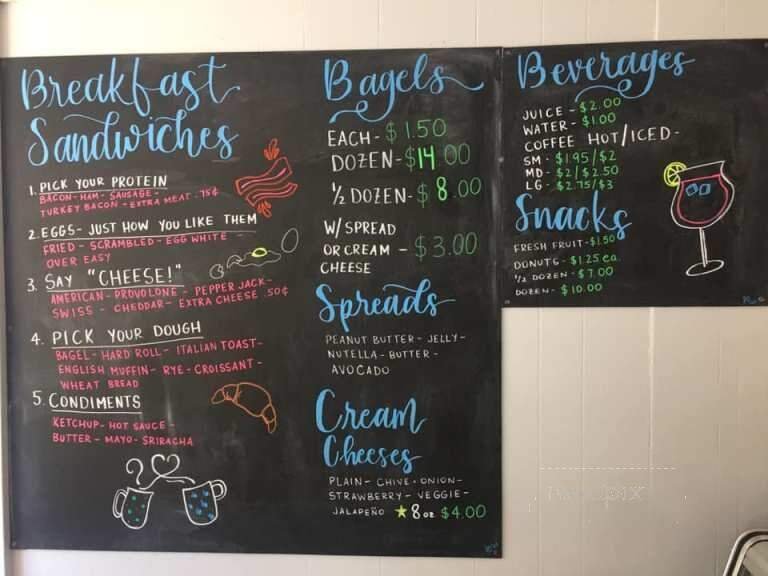 Breakfast
Sandwiches
1. PICK YOUR PROTEIN
BACON - HAM - SAUSAGE -
TURKEY BACON - EXTRA MEAT .75¢
2. EGGS - JUST HOW YOU LIKE THEM
FRIED - SCRAMBLED - EGG WHITE
OVER EASY
3. SAY "CHEESE!"
AMERICAN - PROVOLONE - PEPPER JACK -
SWISS - CHEDDAR - EXTRA CHEESE .50¢
4. PICK YOUR DOUGH
BAGEL - HARD ROLL - ITALIAN TOAST -
ENGLISH MUFFIN - RYE - CROISSANT -
WHEAT BREAD
5. CONDIMENTS
KETCHUP - HOT SAUCE -
BUTTER - MAYO - SRIRACHA
Bagels
EACH - $1.50
DOZEN - $14.00
½ DOZEN - $8.00
W/ SPREAD
OR CREAM - $3.00
CHEESE
Spreads
PEANUT BUTTER - JELLY -
NUTELLA - BUTTER -
AVOCADO
Cream
Cheeses
PLAIN - CHIVE - ONION -
STRAWBERRY - VEGGIE -
JALAPEÑO ★ 8 oz $4.00
Beverages
JUICE - $2.00
WATER - $1.00
COFFEE HOT/ICED -
SM - $1.95/$2
MD - $2/$2.50
LG - $2.75/$3
Snacks
FRESH FRUIT - $1.50
DONUTS - $1.25 ea.
½ DOZEN - $7.00
DOZEN - $10.00